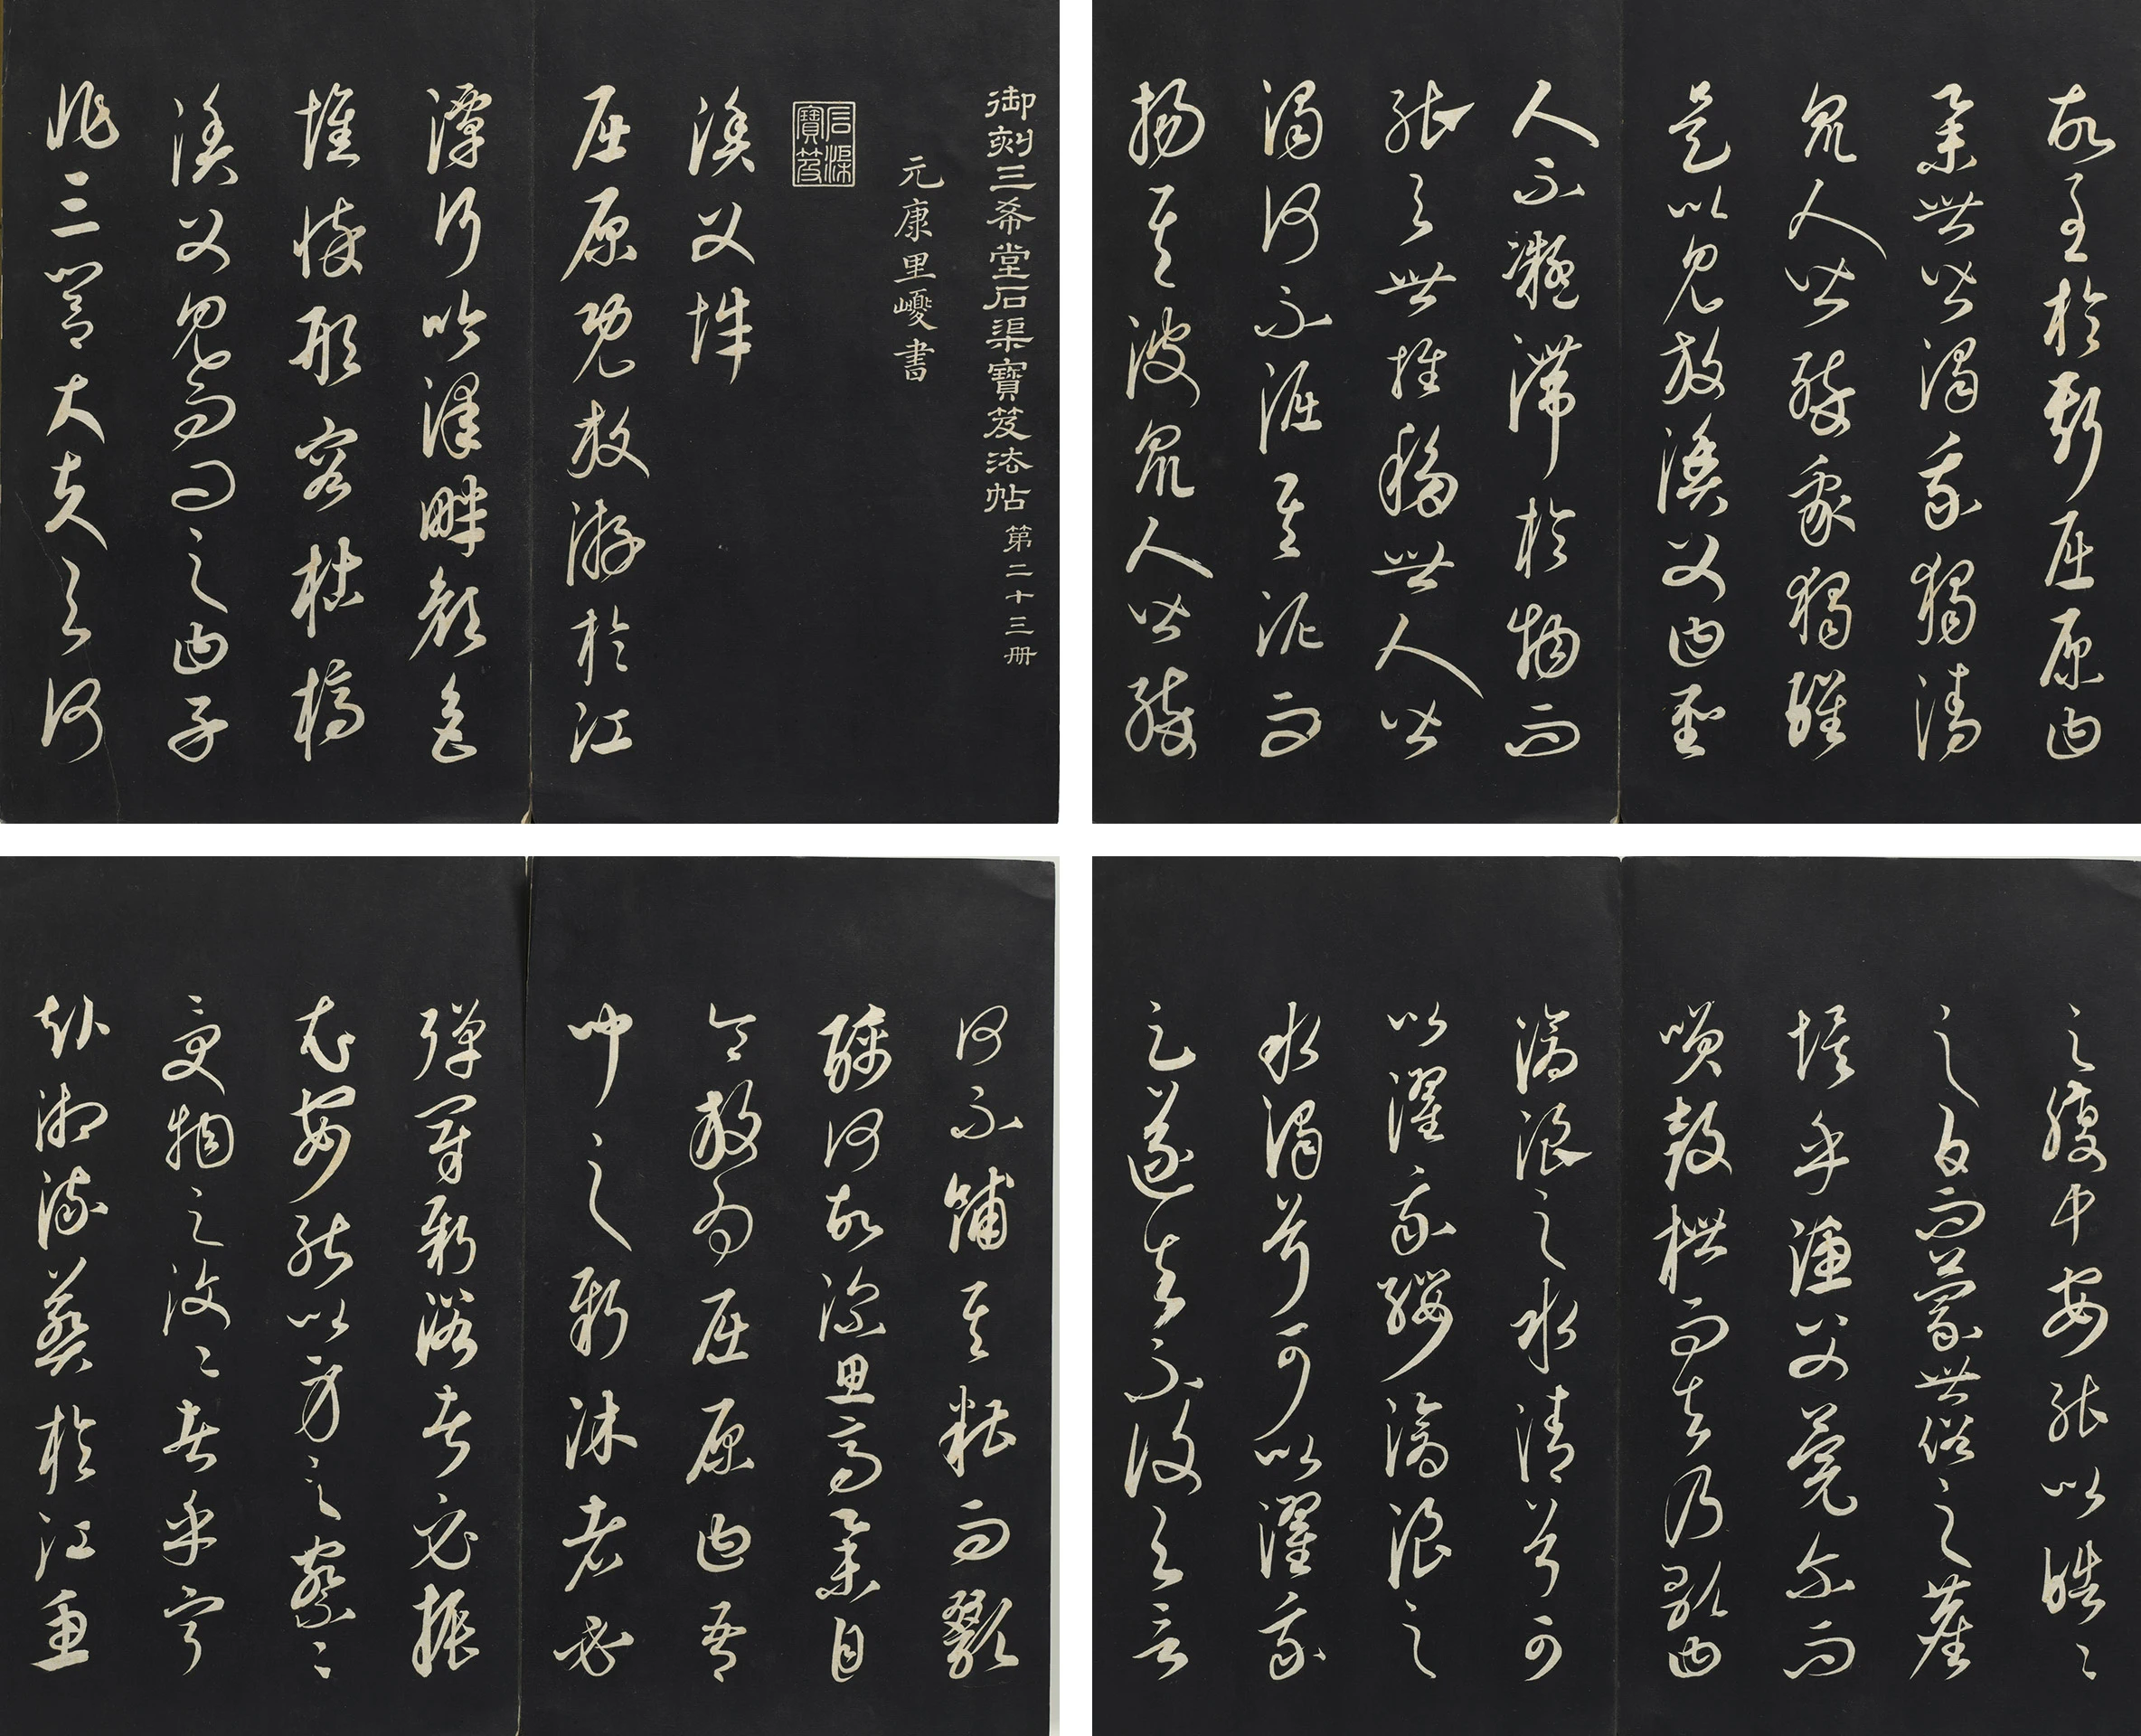 御刻三希堂石渠寶笈法帖第二十三册
元康里巎書
石渠寶笈
漁父
屈原既放游於江
潭行吟澤畔顏色
憔悴形容枯槁
漁父見而問之曰子
非三閭大夫與何
故至於斯屈原曰
舉世皆濁我獨清
眾人皆醉我獨醒
是以見放漁父曰聖
人不凝滯於物而
能與世推移世人皆
濁何不淈其泥而
揚其波眾人皆醉
何不餔其糟而歠
醨何故深思高舉自
令放為屈原曰吾
聞之新沐者必
彈冠新浴者必振
衣安能以身之察〻
受物之汶〻者乎寧
赴湘流葬於江魚
之腹中安能以皓〻
之白而蒙世俗之塵
埃乎漁父莞爾而
笑鼓枻而去乃歌曰
滄浪之水清兮可
以濯我纓滄浪之
水濁兮可以濯我
足遂去不復與言